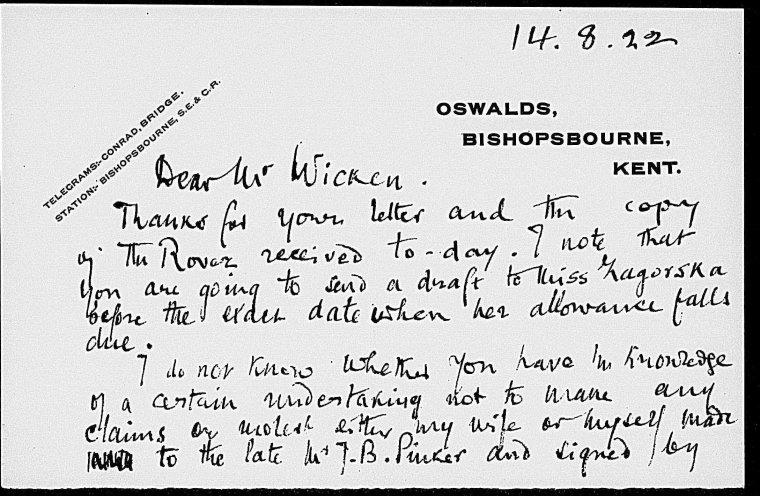 14. 8. 22
TELEGRAMS:- CONRAD, BRIDGE.
STATION:- BISHOPSBOURNE, S.E. & C.R.
OSWALDS,
BISHOPSBOURNE,
KENT.
Dear Mr Wicken.
Thanks for your letter and the copy
of The Rover received to-day. I note that
you are going to send a draft to Miss Zagorska
before the exact date when her allowance falls
due.
I do not know whether you have the knowledge
of a certain undertaking not to make any
claims or molest either my wife or myself made
to the late Mr J.B. Pinker and signed by